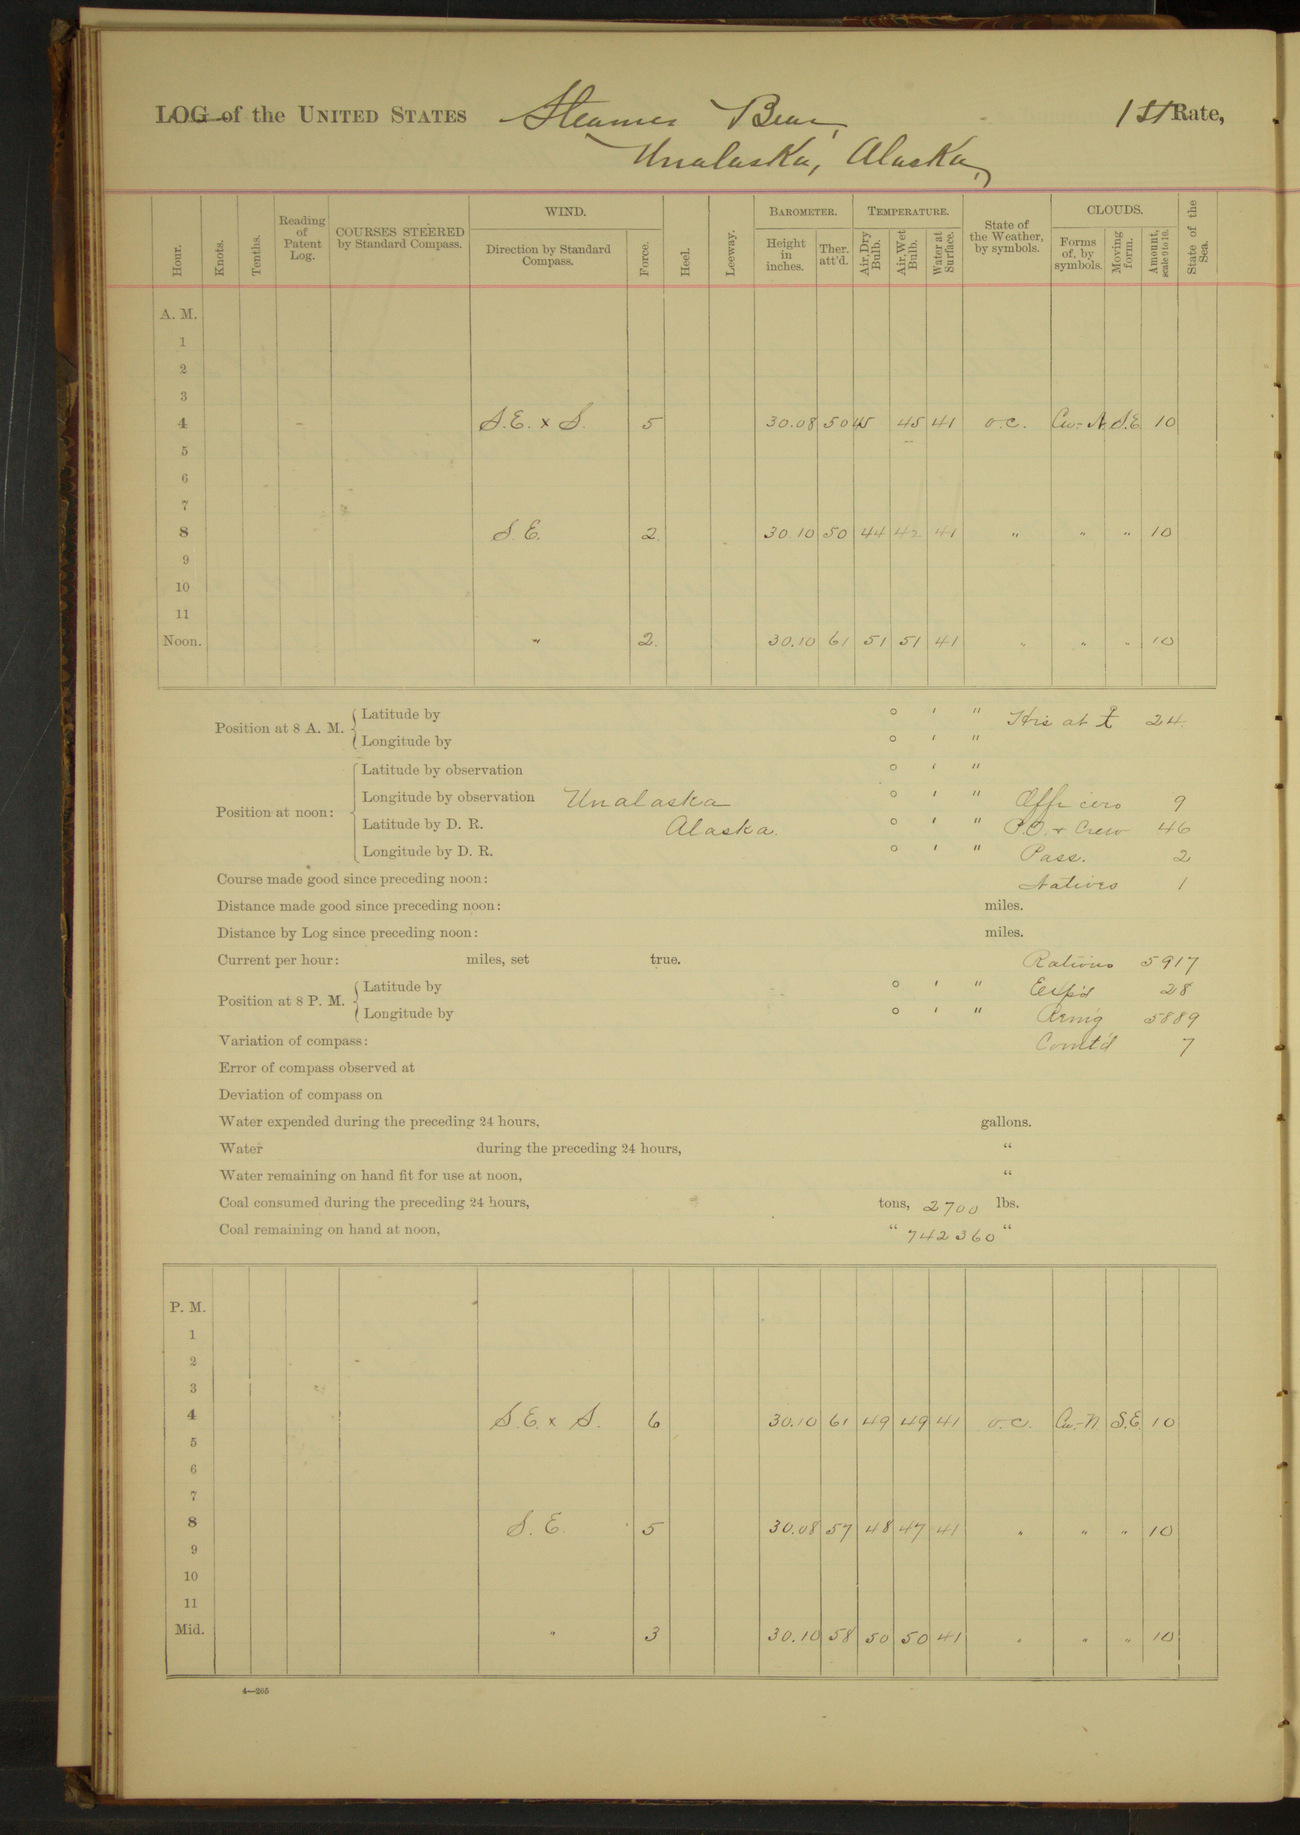 LOG of the UNITED STATES Steamer Bear, 1st Rate,
Unalaska, Alaska,
Hour. Knots. Tenths. Reading of Patent Log. COURSES STEERED by Standard Compass. WIND. Direction by Standard Compass. Force. Heel. Leeway. BAROMETER. Height in inches. Ther. att'd. TEMPERATURE. Air, Dry Bulb. Air, Wet Bulb. Water at Surface. State of the Weather, by symbols. CLOUDS. Forms of, by symbols. Moving form. Amount, scale 0 to 10. State of the Sea.
A. M.
1
2
3
4 S.E. x S. 5 30.08 50 45 45 41 o.c. Cu.-N. S.E. 10
5
6
7
8 S.E. 2 30.10 50 44 42 41 " " " 10
9
10
11
Noon. " 2 30.10 61 51 51 41 " " " 10
Position at 8 A. M. Latitude by ° ' " Hrs at ⚓ 24
Longitude by ° ' "
Position at noon: Latitude by observation ° ' "
Longitude by observation Unalaska ° ' " Officers 9
Latitude by D. R. Alaska. ° ' " P.O. & Crew 46
Longitude by D. R. ° ' " Pass. 2
Course made good since preceding noon: Natives 1
Distance made good since preceding noon: miles.
Distance by Log since preceding noon: miles.
Current per hour: miles, set true. Rations 5917
Position at 8 P. M. Latitude by ° ' " Exp'd 28
Longitude by ° ' " Rem'g 5889
Variation of compass: Comt'd 7
Error of compass observed at
Deviation of compass on
Water expended during the preceding 24 hours, gallons.
Water during the preceding 24 hours, "
Water remaining on hand fit for use at noon, "
Coal consumed during the preceding 24 hours, tons, 2700 lbs.
Coal remaining on hand at noon, " 742360 "
P. M.
1
2
3
4 S.E. x S. 6 30.10 61 49 49 41 o.c. Cu.-N. S.E. 10
5
6
7
8 S.E. 5 30.08 57 48 47 41 " " " 10
9
10
11
Mid. " 3 30.10 58 50 50 41 " " " 10
4—265